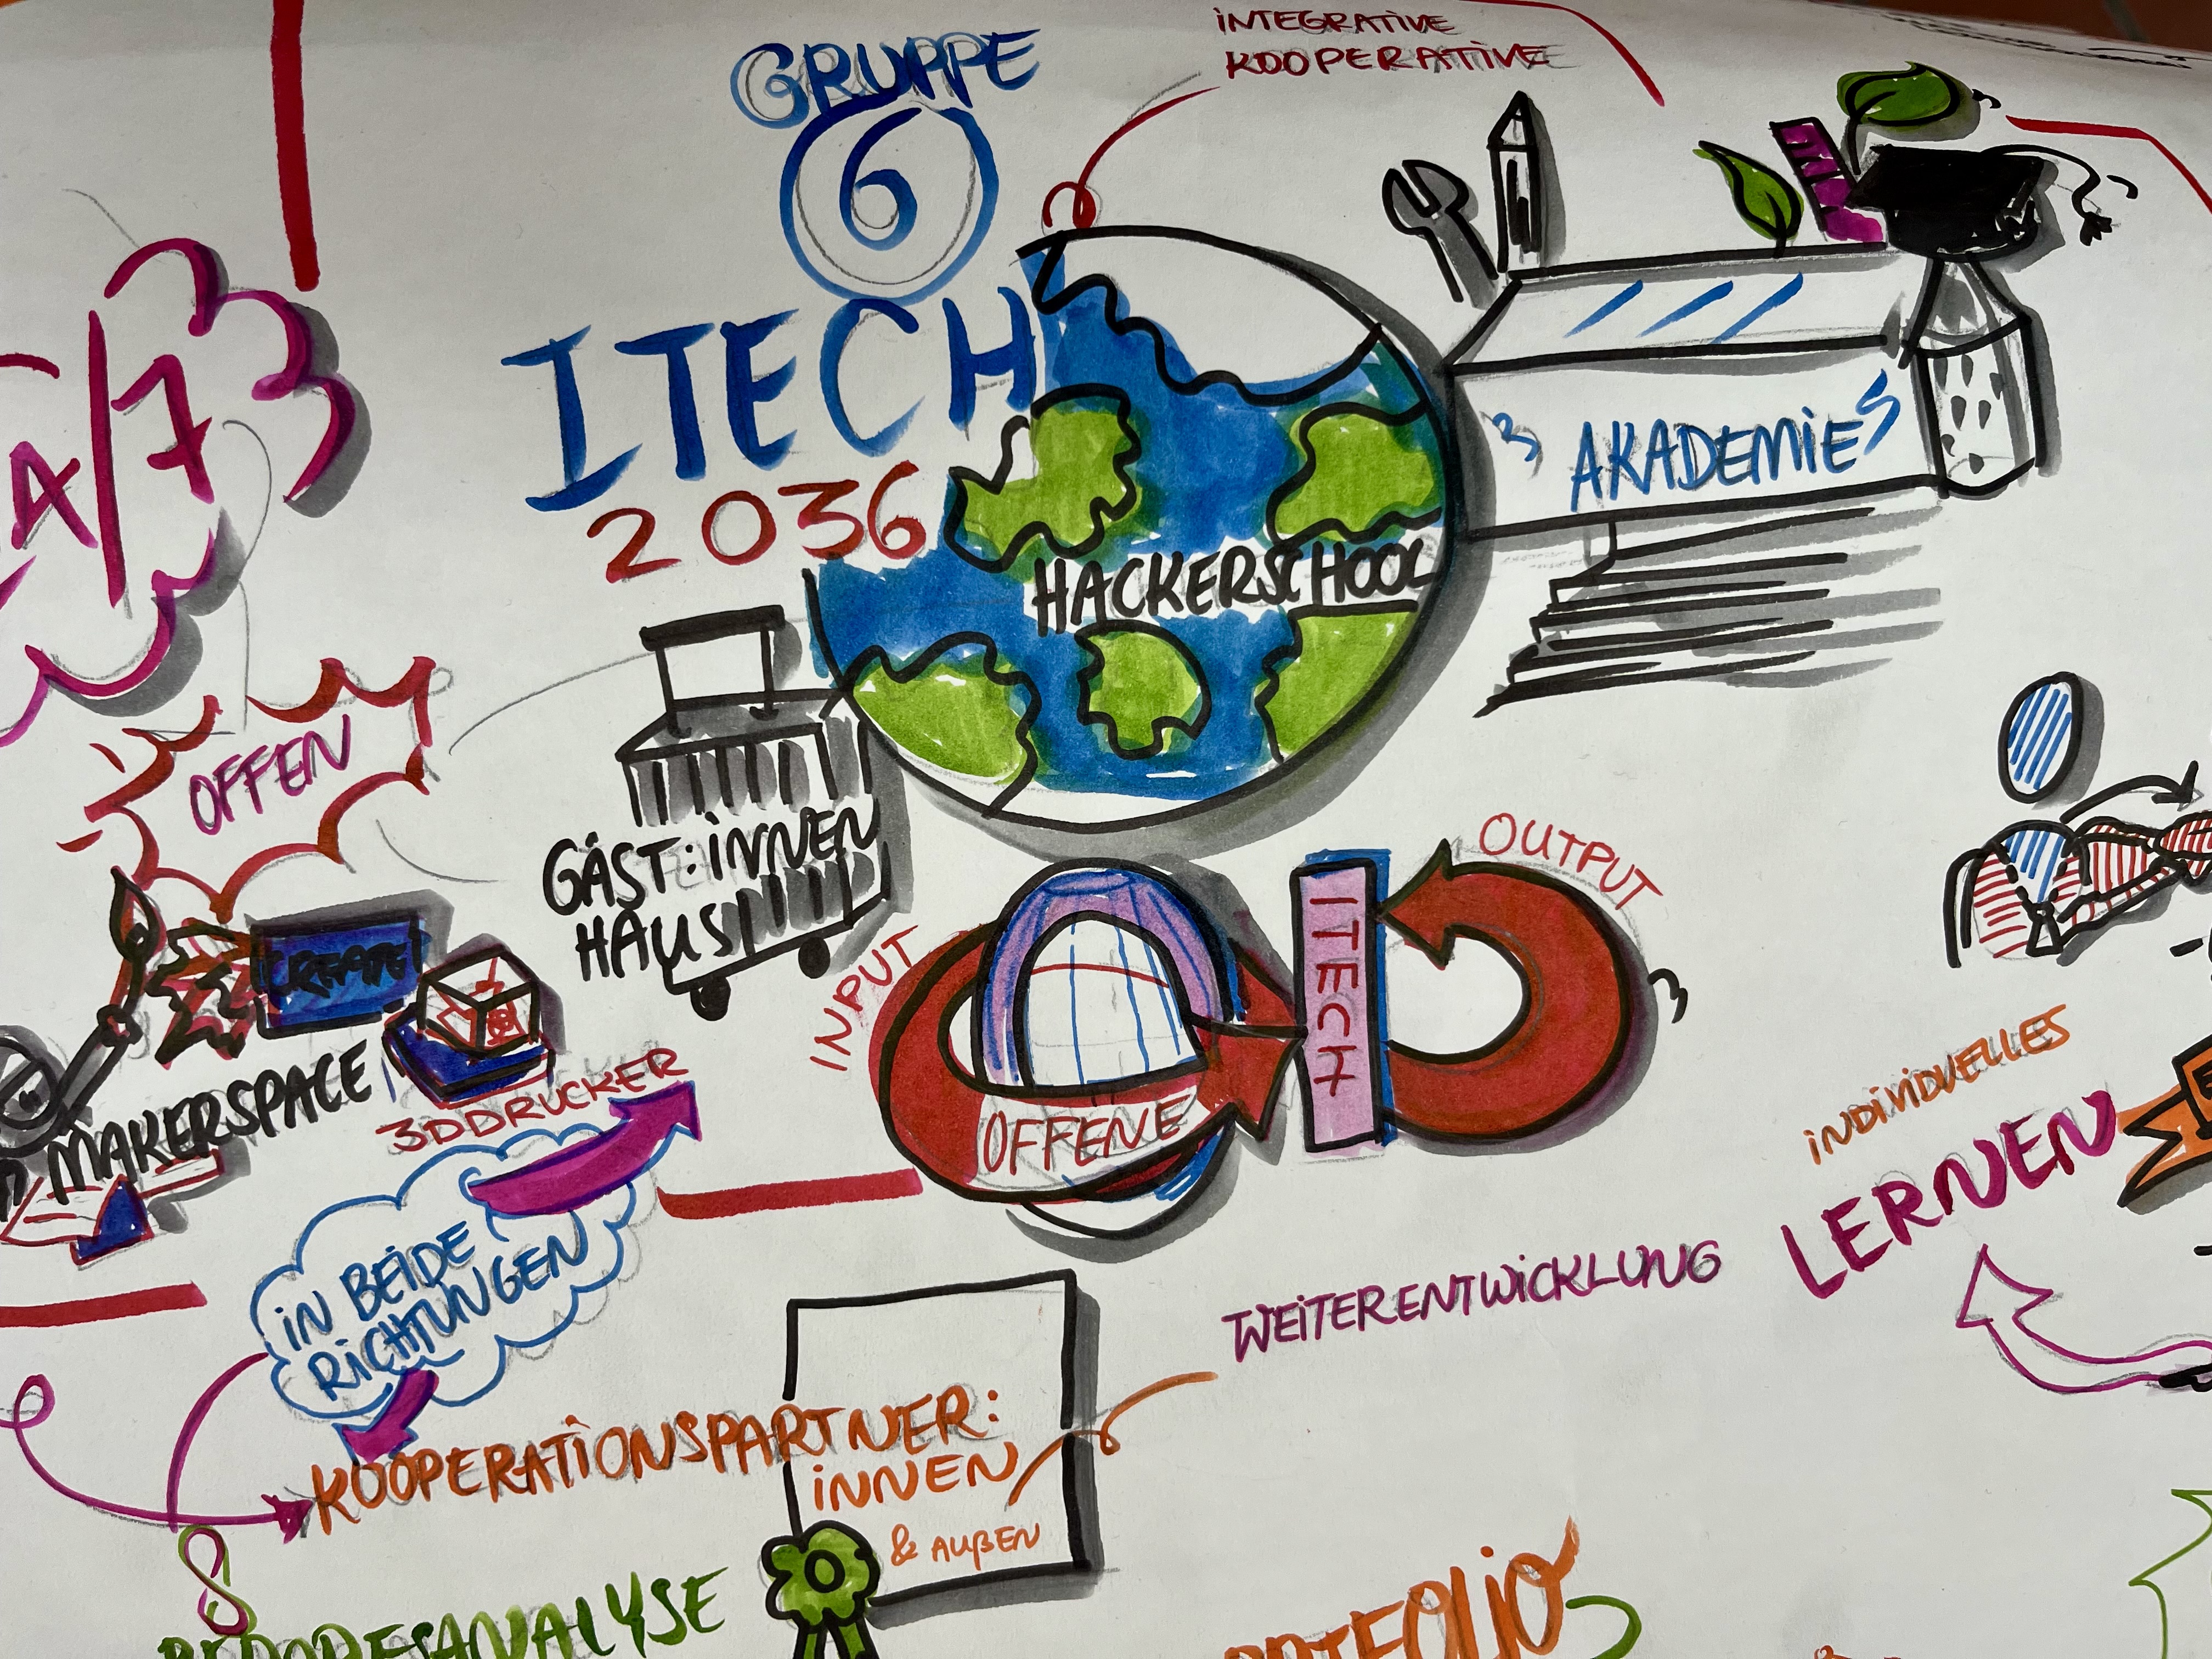 INTEGRATIVE
KOOPERATIVE
GRUPPE
6
ITECH
2036
HACKERSCHOOL
AKADEMIE
A/7
OFFEN
GÄST:INNEN
HAUS
CREATE
MAKERSPACE
3DDRUCKER
INPUT
OFFENE
ITECH
OUTPUT
INDIVIDUELLES
LERNEN
IN BEIDE
RICHTUNGEN
WEITERENTWICKLUNG
KOOPERATIONSPARTNER:
INNEN
& AUßEN